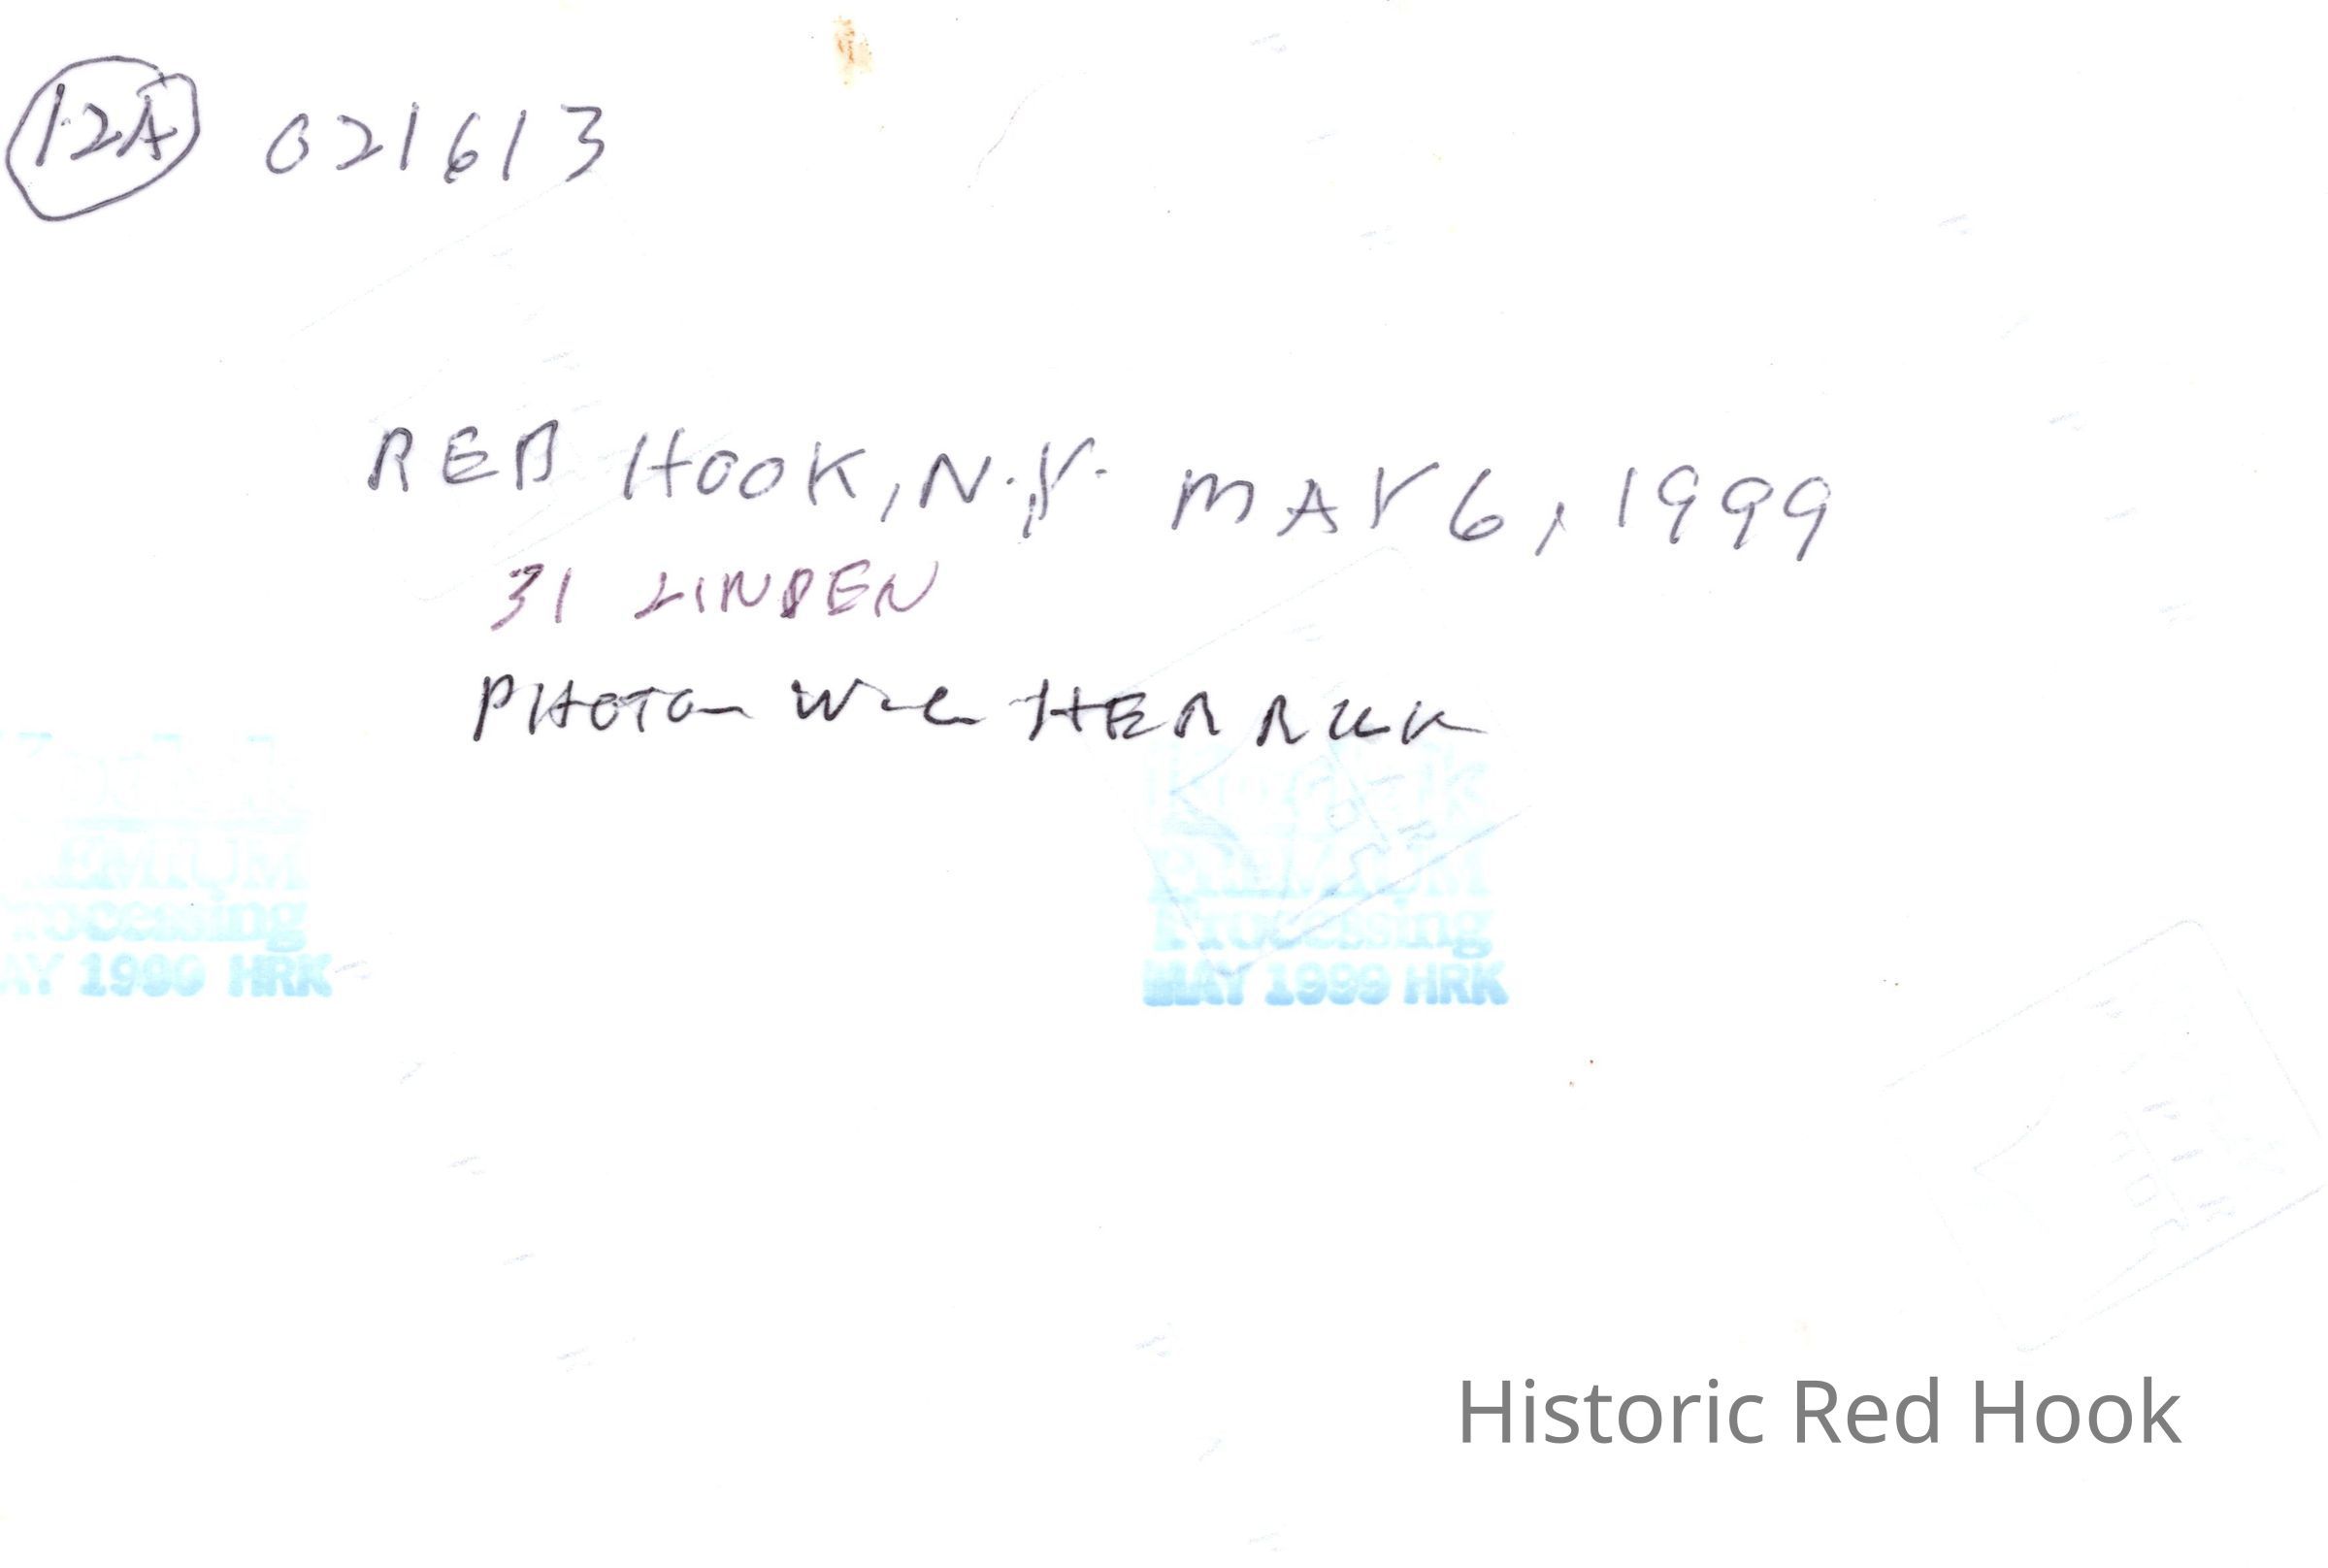 12A 021613
RED HOOK, N.Y. MAY 6, 1999
31 LINDEN
PHOTO HERRICK
EMIUM
rocessing
AY 1999 HRK
Kodak
PREMIUM
Processing
MAY 1999 HRK
Historic Red Hook